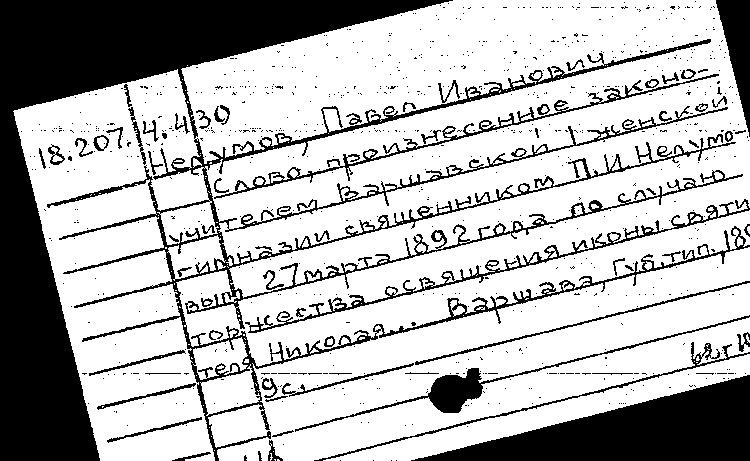 18.207.4.430
Недумов, Павел Иванович.
Слово, произнесенное законо-
учителем Варшавской I женской
гимназии священником П.И. Недумо-
вым 27 марта 1892 года по случаю
торжества освящения иконы святи
теля Николая... Варшава, Губ.тип., 189
9с.